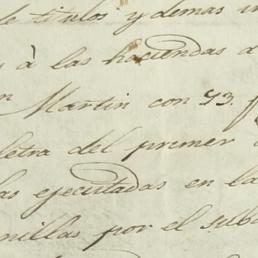 de titulos y demas in
à las haciendas d
n Martin con 93. f
letra del primer
as ejecutadas en la
nillas por el sub